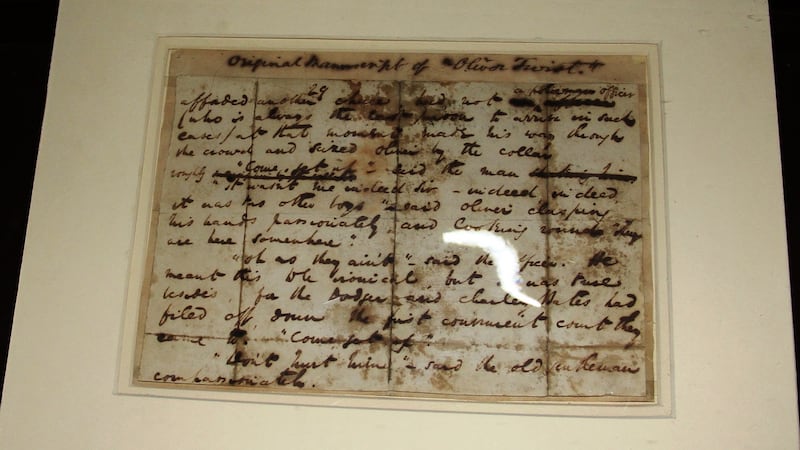 Original Manuscript of "Oliver Twist."
29
afforded another chase had not a police officer
(who is always the last person to arrive in such
cases) at that moment made his way through
the crowd and seized Oliver by the collar
roughly "Come, get up" – said the man
"It wasn't me indeed Sir – indeed indeed
it was two other boys" – said Oliver clasping
his hands passionately and looking round "they
are here somewhere".
"Oh no they ain't" – said the officer. He
meant this to be ironical, but it was true
besides, for the Dodger and Charley Bates had
filed off down the first convenient court they
came to. "Come, get up".
"Don't hurt him" – said the old gentleman
compassionately.